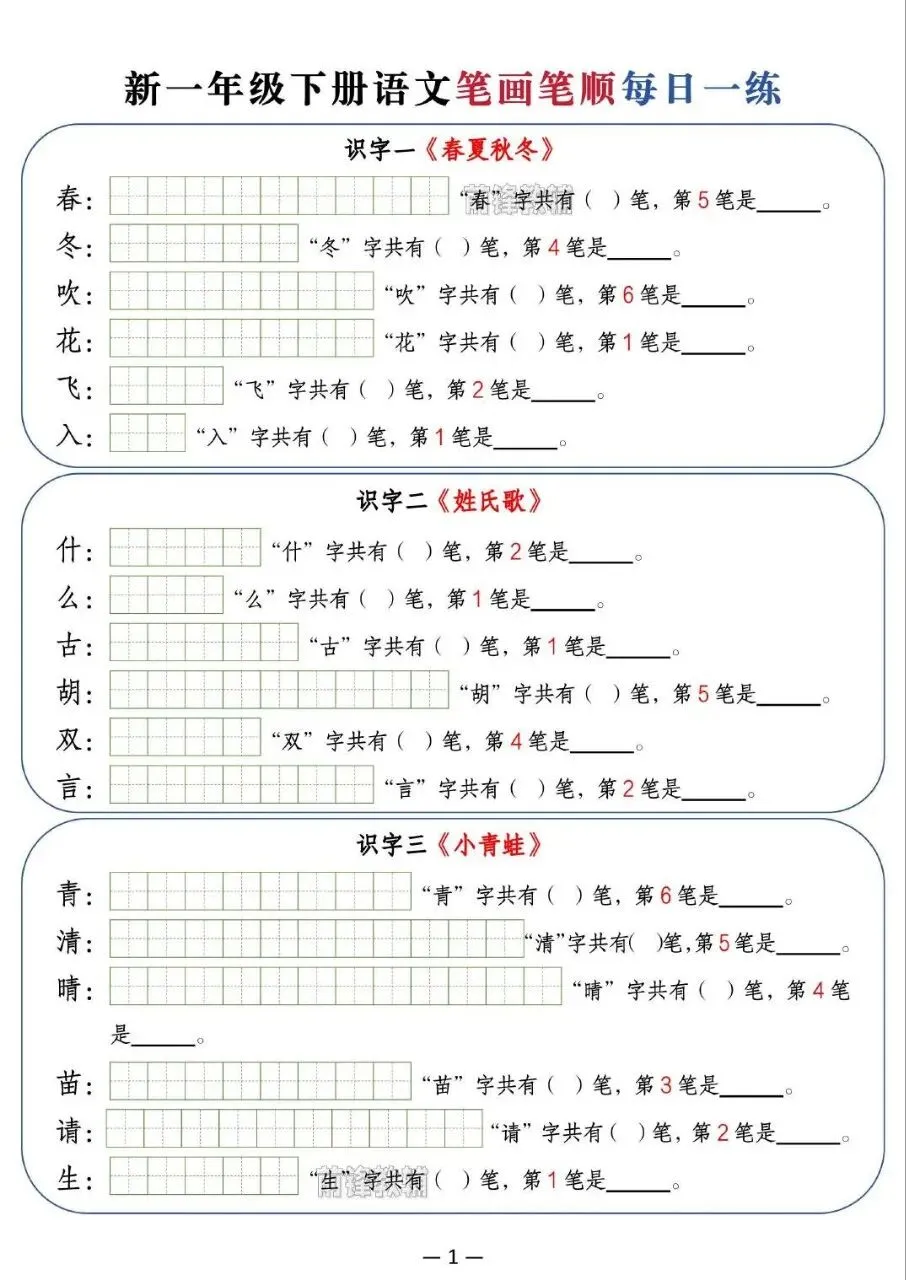 新一年级下册语文笔画笔顺每日一练
识字一《春夏秋冬》
春： “春”字共有（ ）笔，第5笔是______。
冬： “冬”字共有（ ）笔，第4笔是______。
吹： “吹”字共有（ ）笔，第6笔是______。
花： “花”字共有（ ）笔，第1笔是______。
飞： “飞”字共有（ ）笔，第2笔是______。
入： “入”字共有（ ）笔，第1笔是______。
识字二《姓氏歌》
什： “什”字共有（ ）笔，第2笔是______。
么： “么”字共有（ ）笔，第1笔是______。
古： “古”字共有（ ）笔，第1笔是______。
胡： “胡”字共有（ ）笔，第5笔是______。
双： “双”字共有（ ）笔，第4笔是______。
言： “言”字共有（ ）笔，第2笔是______。
识字三《小青蛙》
青： “青”字共有（ ）笔，第6笔是______。
清： “清”字共有( )笔,第5笔是______。
晴： “晴”字共有（ ）笔，第4笔
是______。
苗： “苗”字共有（ ）笔，第3笔是______。
请： “请”字共有（ ）笔，第2笔是______。
生： “生”字共有（ ）笔，第1笔是______。
— 1 —